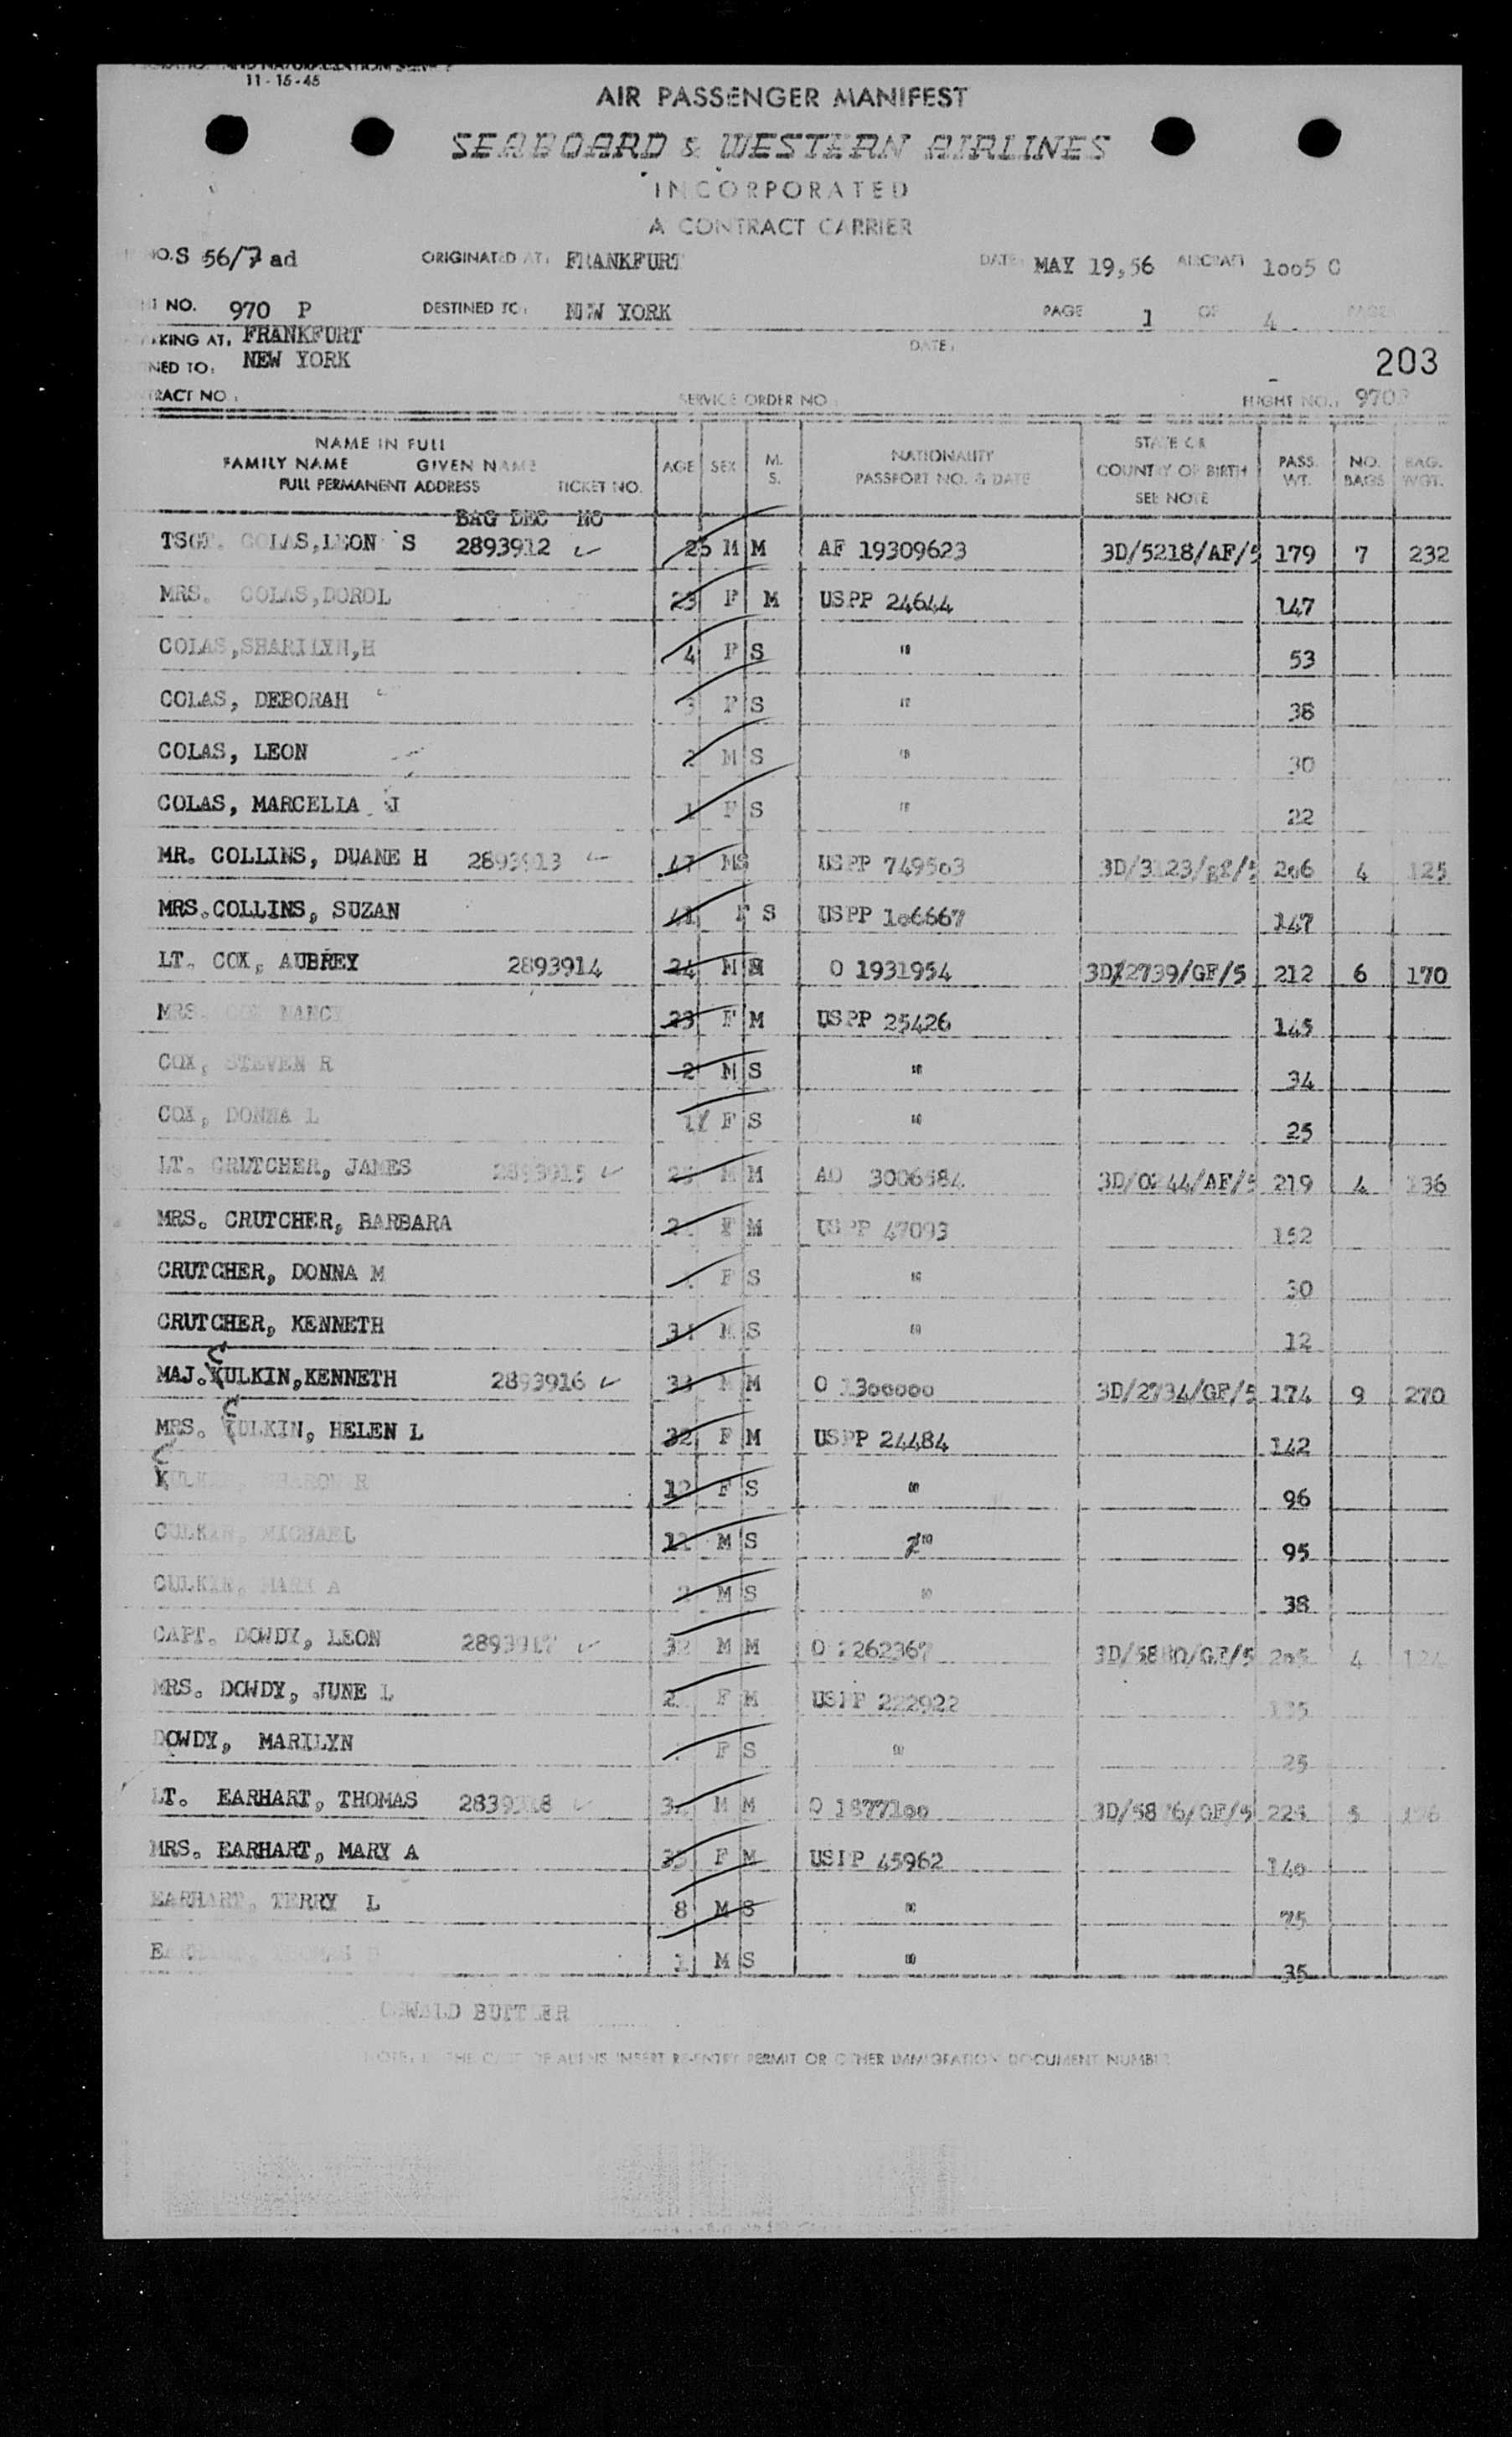 11-15-45
AIR PASSENGER MANIFEST
SEABOARD & WESTERN AIRLINES
INCORPORATED
A CONTRACT CARRIER
NO.S 56/7 ad ORIGINATED AT: FRANKFURT DATE: MAY 19,56 AIRCRAFT 1005 C
NO. 970 P DESTINED TO: NEW YORK PAGE 1 OF 4
KING AT. FRANKFURT DATE:
NED TO: NEW YORK 203
RACT NO: SERVICE ORDER NO FLIGHT NO.: 970
NAME IN FULL STATE OR
FAMILY NAME GIVEN NAME AGE SEX M. NATIONALITY COUNTRY OF BIRTH PASS. NO. BAG.
FULL PERMANENT ADDRESS TICKET NO. S. PASSPORT NO. & DATE SEE NOTE WT. BAGS WGT.
BAG DEC NO
TSGT. COLAS,LEON S 2893912 25 M M AF 19309623 3D/5218/AF/5 179 7 232
MRS. COLAS,DOROL 23 F M USPP 24644 147
COLAS,SHARILYN,H 4 F S " 53
COLAS, DEBORAH 3 F S " 38
COLAS, LEON 2 M S " 30
COLAS, MARCELIA J 1 F S " 22
MR. COLLINS, DUANE H 2893913 47 MS USPP 749503 3D/3123/gf/5 206 4 125
MRS.COLLINS, SUZAN 41 F S USPP 106667 147
LT. COX, AUBREY 2893914 24 M M O 1931954 3D/2739/GF/5 212 6 170
MRS. COX NANCY 23 F M USPP 25426 145
COX, STEVEN R 2 M S " 34
COX, DONNA L 1 F S " 25
LT. CRUTCHER, JAMES 2893915 25 M M AO 3006584 3D/0244/AF/5 219 4 136
MRS. CRUTCHER, BARBARA F M USPP 47093 152
CRUTCHER, DONNA M F S " 30
CRUTCHER, KENNETH M S " 12
MAJ. CULKIN,KENNETH 2893916 33 M M O 1300000 3D/2734/GF/5 174 9 270
MRS. CULKIN, HELEN L 32 F M USPP 24484 142
CULKIN, SHARON R 12 F S " 96
CULKIN, MICHAEL 11 M S " 95
CULKIN, MARK A M S " 38
CAPT. DOWDY, LEON 2893917 32 M M O 2262367 3D/5880/GF/5 205 4 124
MRS. DOWDY, JUNE L F M USPP 222922
DOWDY, MARILYN F S " 25
LT. EARHART, THOMAS 2839318 M M O 1877100 3D/5876/GF/5 5
MRS. EARHART, MARY A 35 F M USPP 45962 140
EARHART, TERRY L 8 M S " 75
1 M S " 35
OSWALD BUTTLER
NOTE: IN THE CASE OF ALIENS INSERT RE-ENTRY PERMIT OR OTHER IMMIGRATION DOCUMENT NUMBER